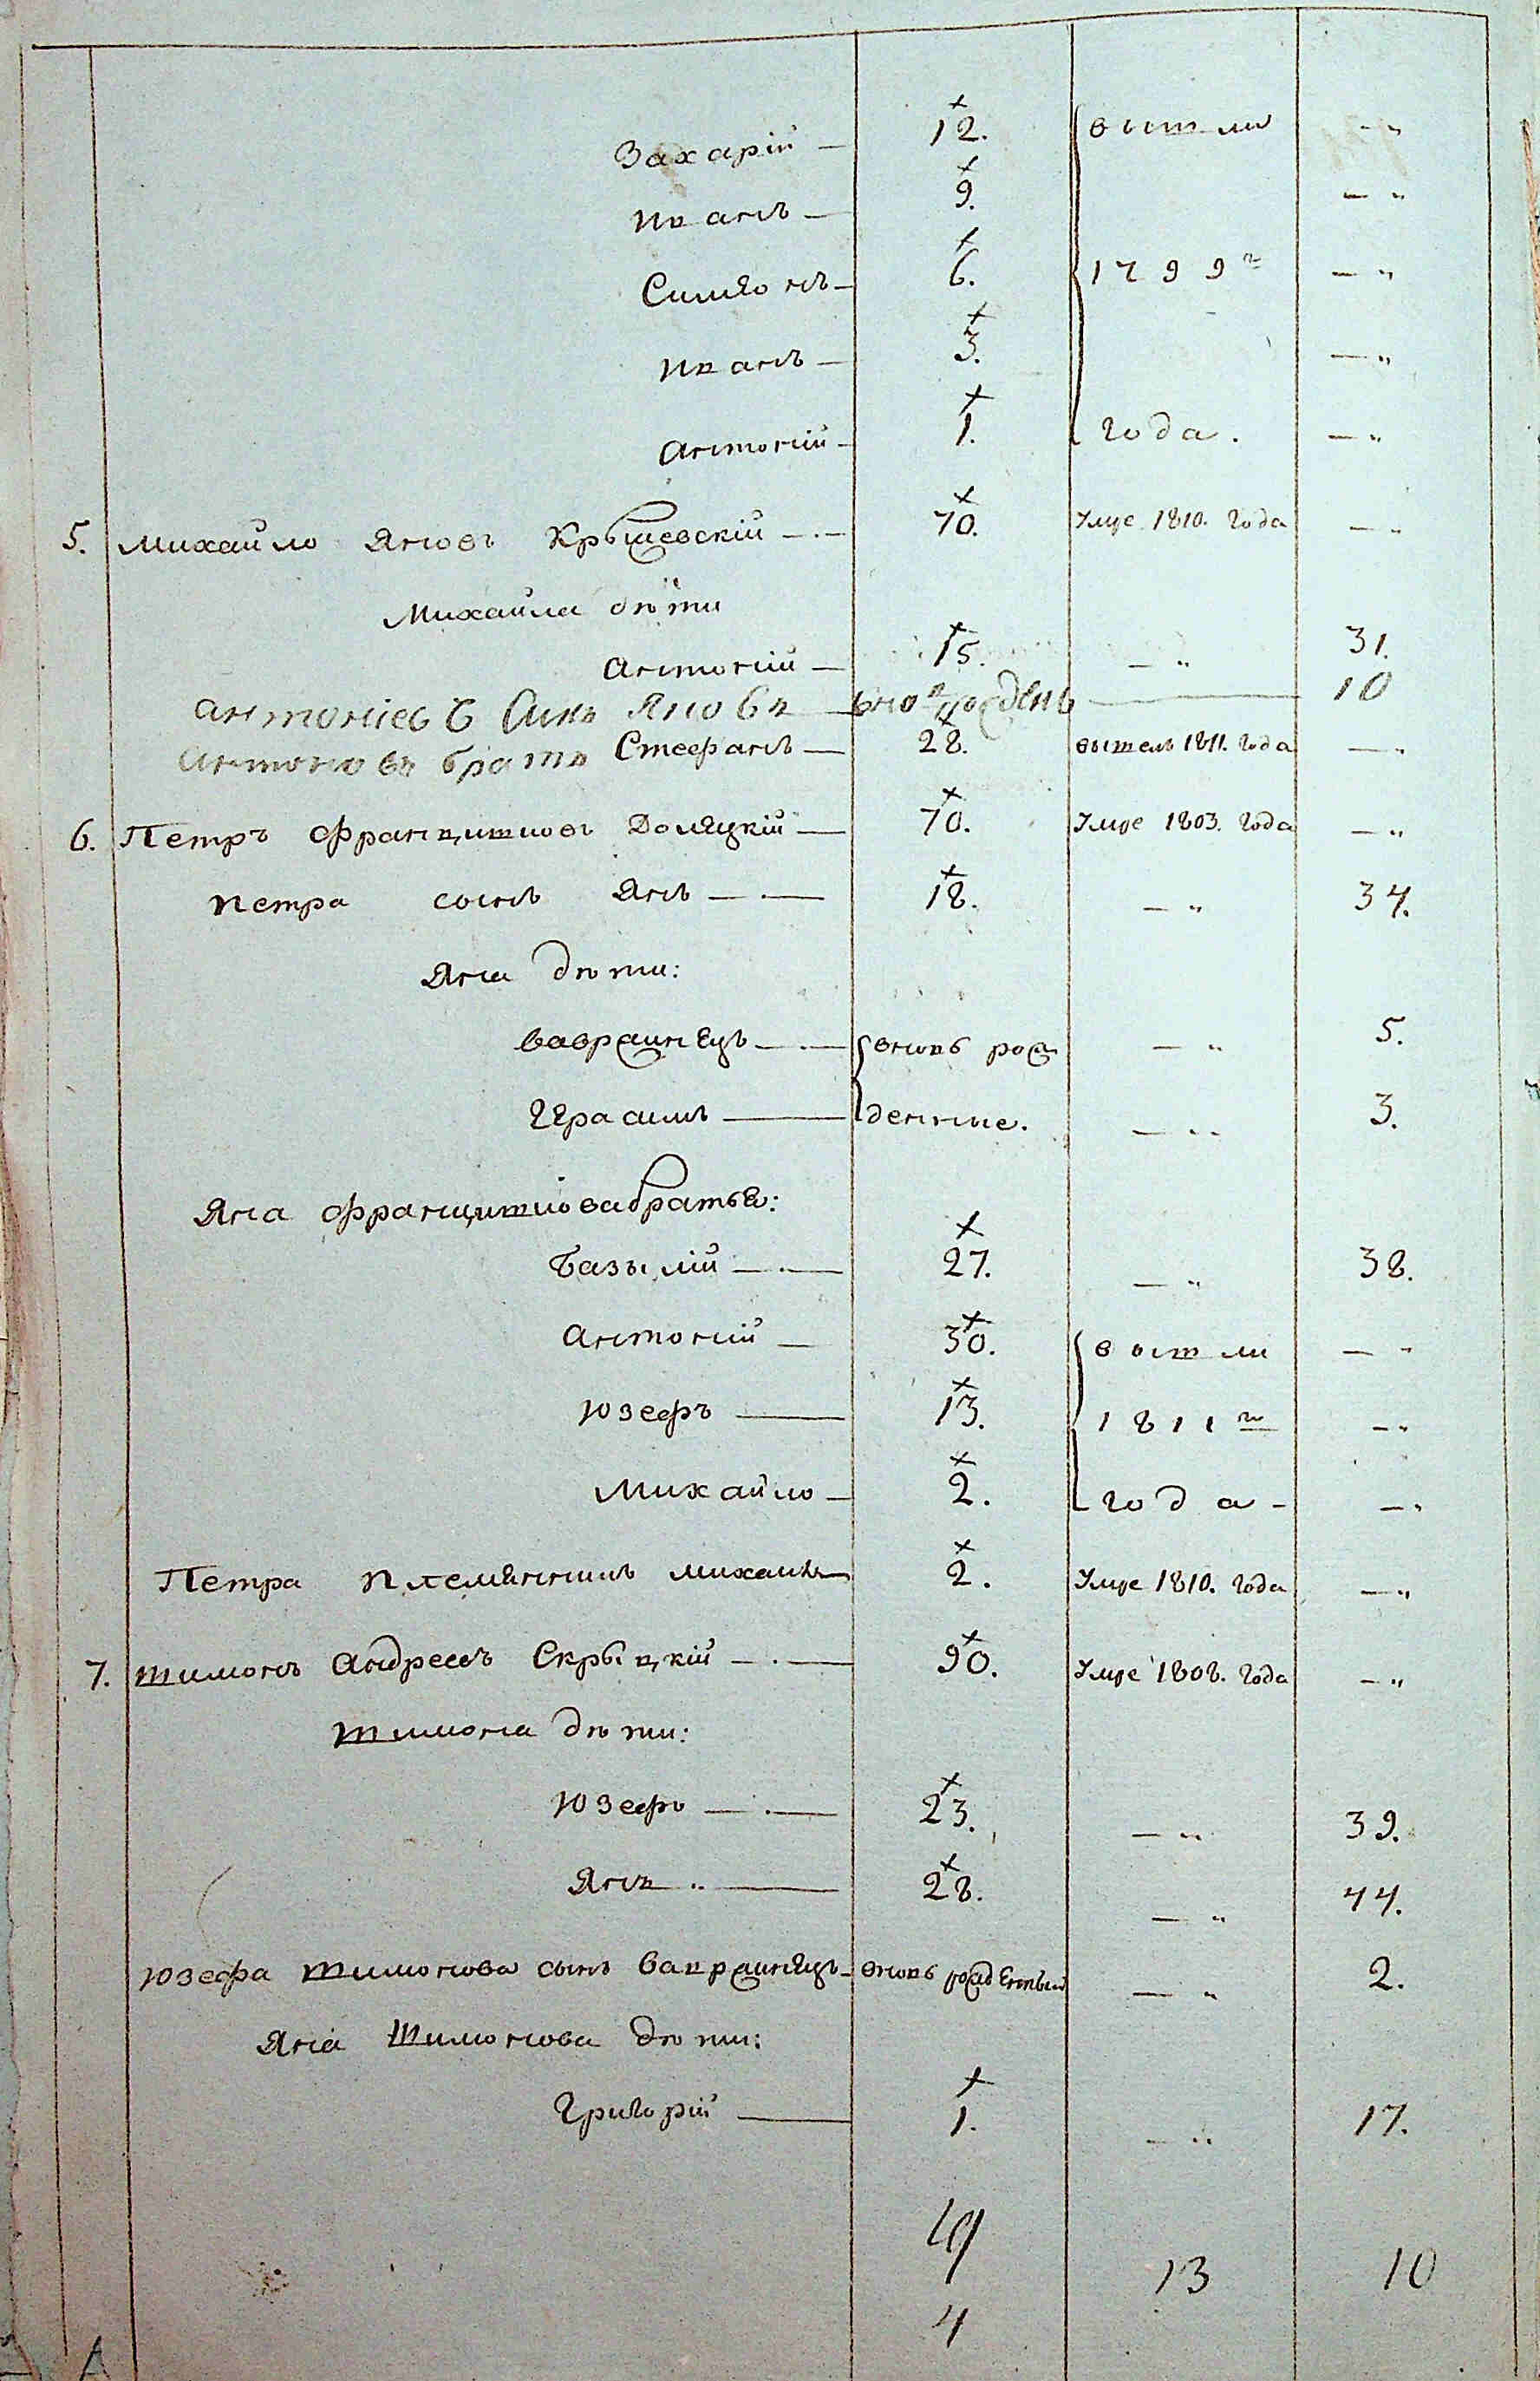 Захарій — 12. вышли — „
Иванъ — 9. — „
Симяонъ — 6. 1799го — „
Иванъ — 3. — „
Антоній — 1. года. — „
5. Михайло Яновъ Крыжевскій — 70. Умре 1810. года — „
Михайла дѣти
Антоній — 15. — „ 31.
Антоніевъ Сынъ Яновъ — вновъ рожденъ — 10
Антоновъ братъ Стефанъ — 28. вышелъ 1811. года — „
6. Петръ Францишковъ Доляцкій — 70. Умре 1803. года — „
Петра сынъ Янъ — 18. — „ 34.
Яна дѣти:
Вавринецъ — вновь рож — „ 5.
Герасимъ — денные. — „ 3.
Яна Францишкова братья:
Базылій — 27. — „ 38.
Антоній — 30. вышли — „
Юзефъ — 13. 1811го — „
Михайло — 2. года — — „
Петра племянникъ Михайла — 2. Умре 1810. года — „
7. Тимонъ Андреевъ Скрыцкій — 90. Умре 1808. года — „
Тимона дѣти:
Юзефъ — 23. — „ 39.
Янъ — 28. — „ 44.
Юзефа Тимонова сынъ Вавринецъ — вновь рожденный — „ 2.
Яна Тимонова дѣти:
Григорій — 1. — „ 17.
19 13 10
4